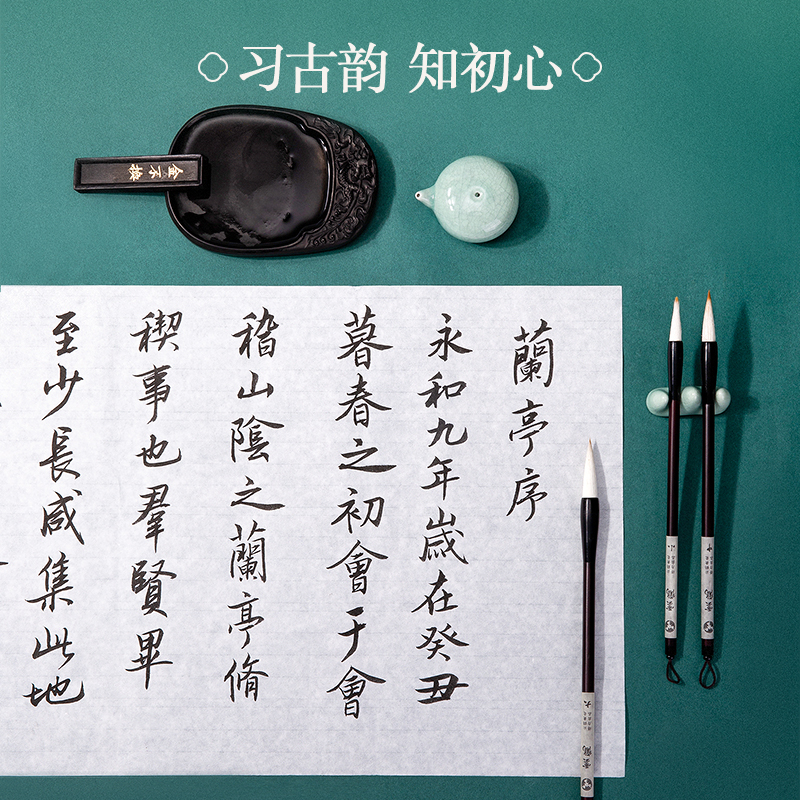 习古韵 知初心
金不换
蘭亭序
永和九年歲在癸丑
暮春之初會于會
稽山陰之蘭亭脩
稧事也羣賢畢
至少長咸集此地
大